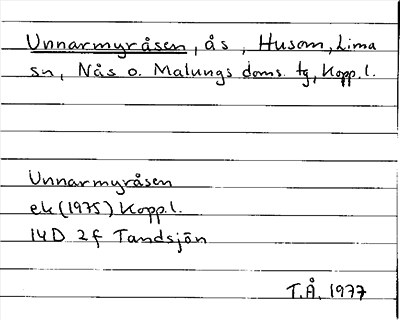 Unnarmyråsen, ås, Husom, Lima
sn, Nås o. Malungs doms. tg, Kopp. l.
Unnarmyråsen
ek (1975) Kopp. l.
14D 2f Tandsjön
T.Å. 1977